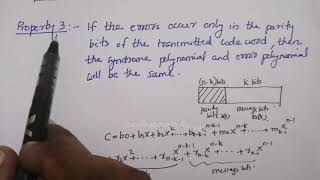 Property 3 :- If the errors occur only in the parity
bits of the transmitted code word, then
the syndrome polynomial and error polynomial
will be the same.
(n-k) bits k bits
parity bits message bits
C = b0 + b1x + b2x² + ... + m0x^n-k + ... + m x^n-1
x^n-k-1 + x^n-k + ... + x^n-1
message bits